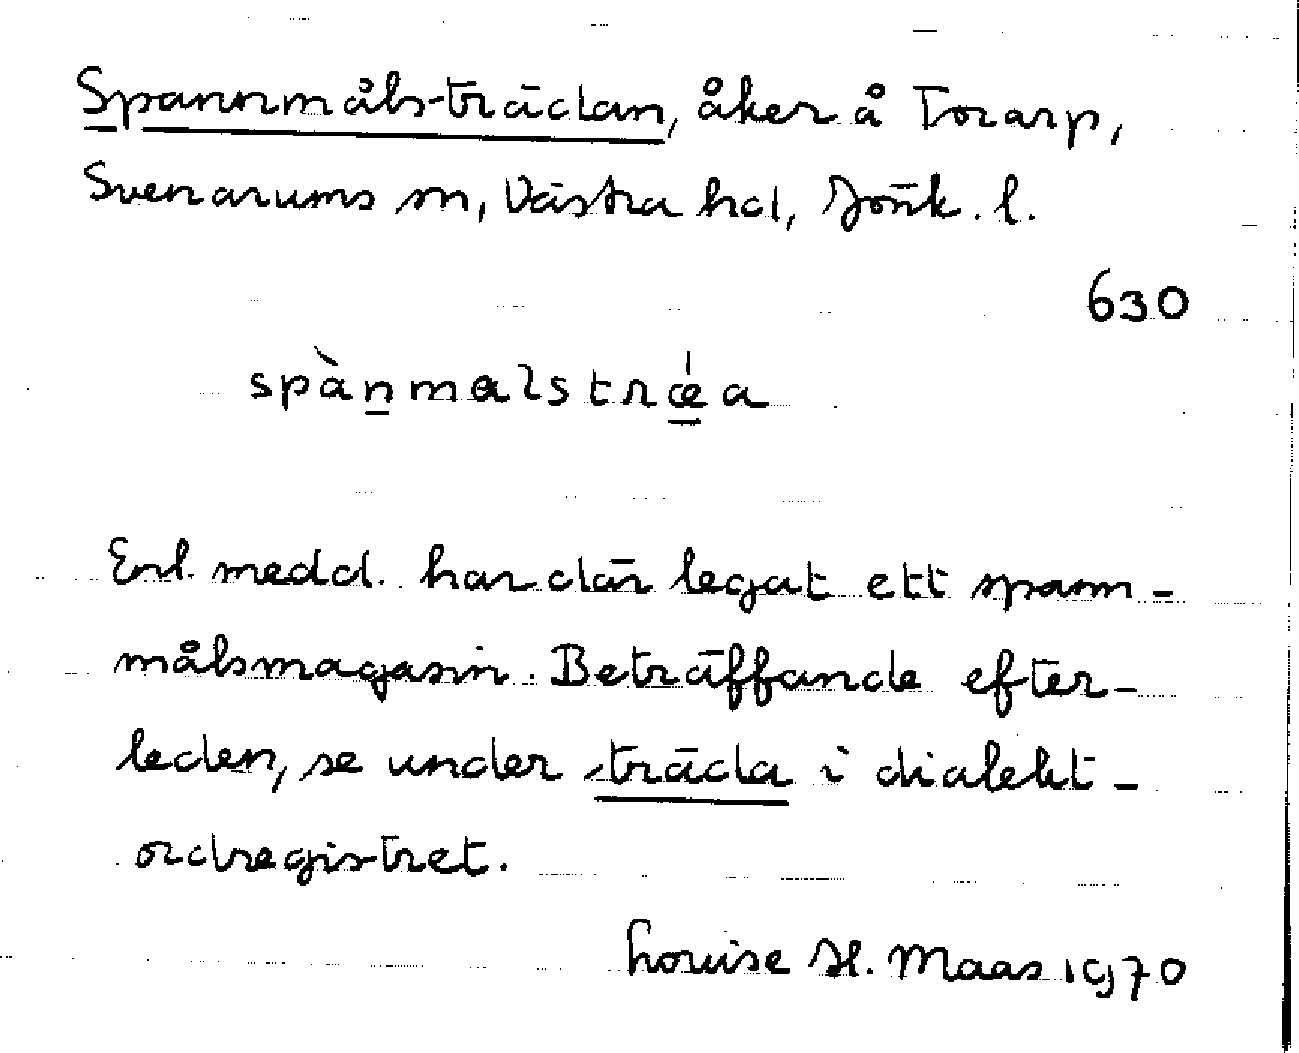 Spannmåls-trädan, åker å Torarp,
Svenarums sn, Västra hd, Jönk. l.
630
spànmalstrǽa
Enl. medd. har där legat ett spann-
målsmagasin. Beträffande efter-
leden, se under träda i dialekt-
ordregistret.
Louise H. Maas 1970